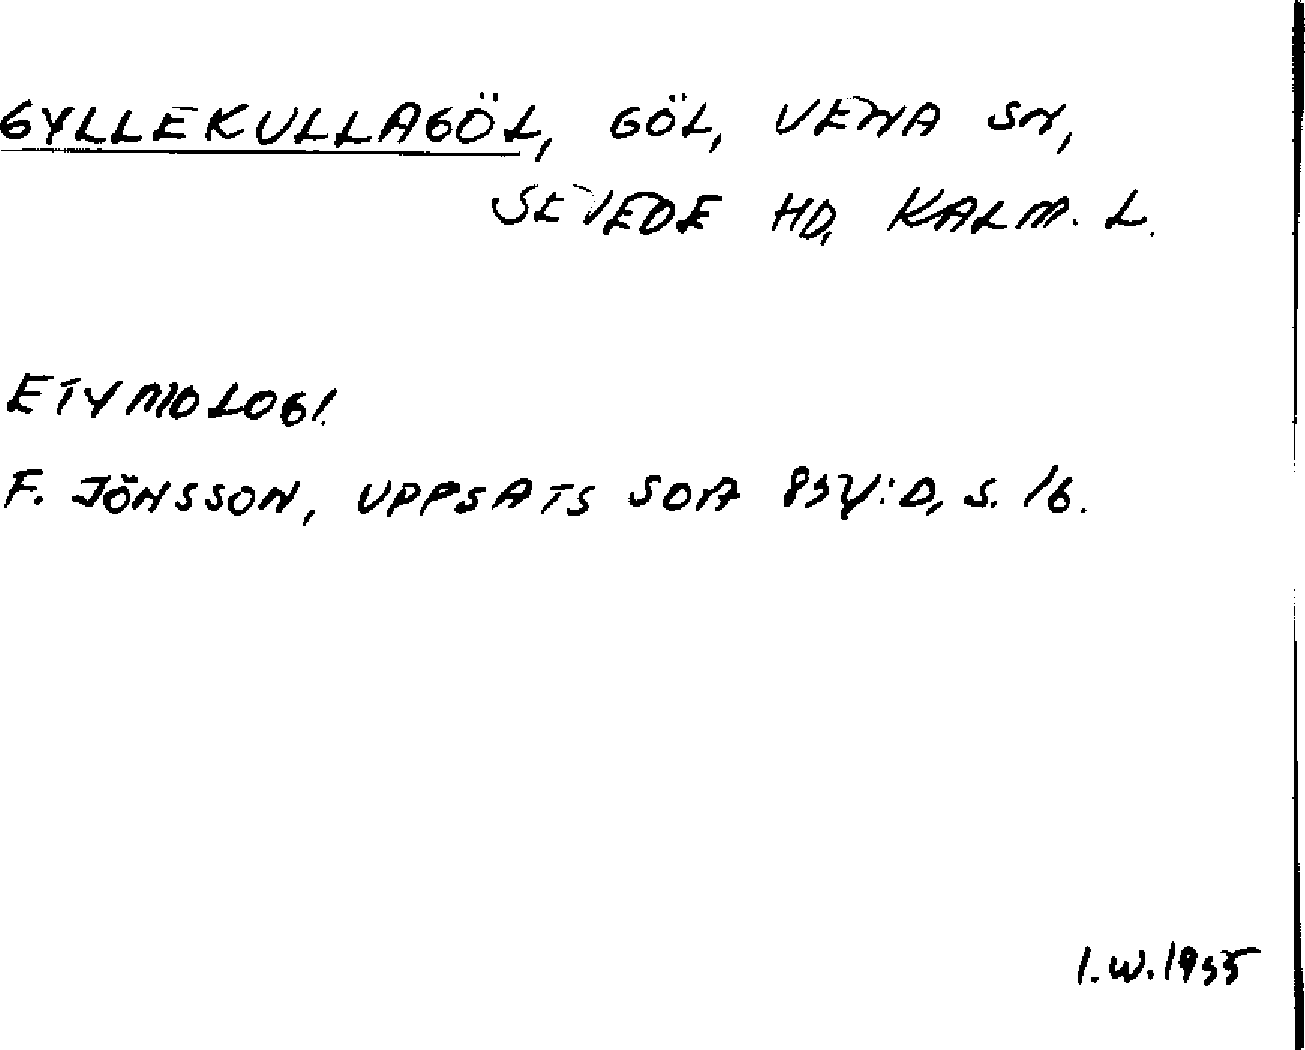 GYLLEKULLAGÖL, GÖL, VENA SN,
SEVEDE HD, KALM. L.
ETYMOLOGI.
F. JÖNSSON, UPPSATS SOA S. 16.
I.W. 1955